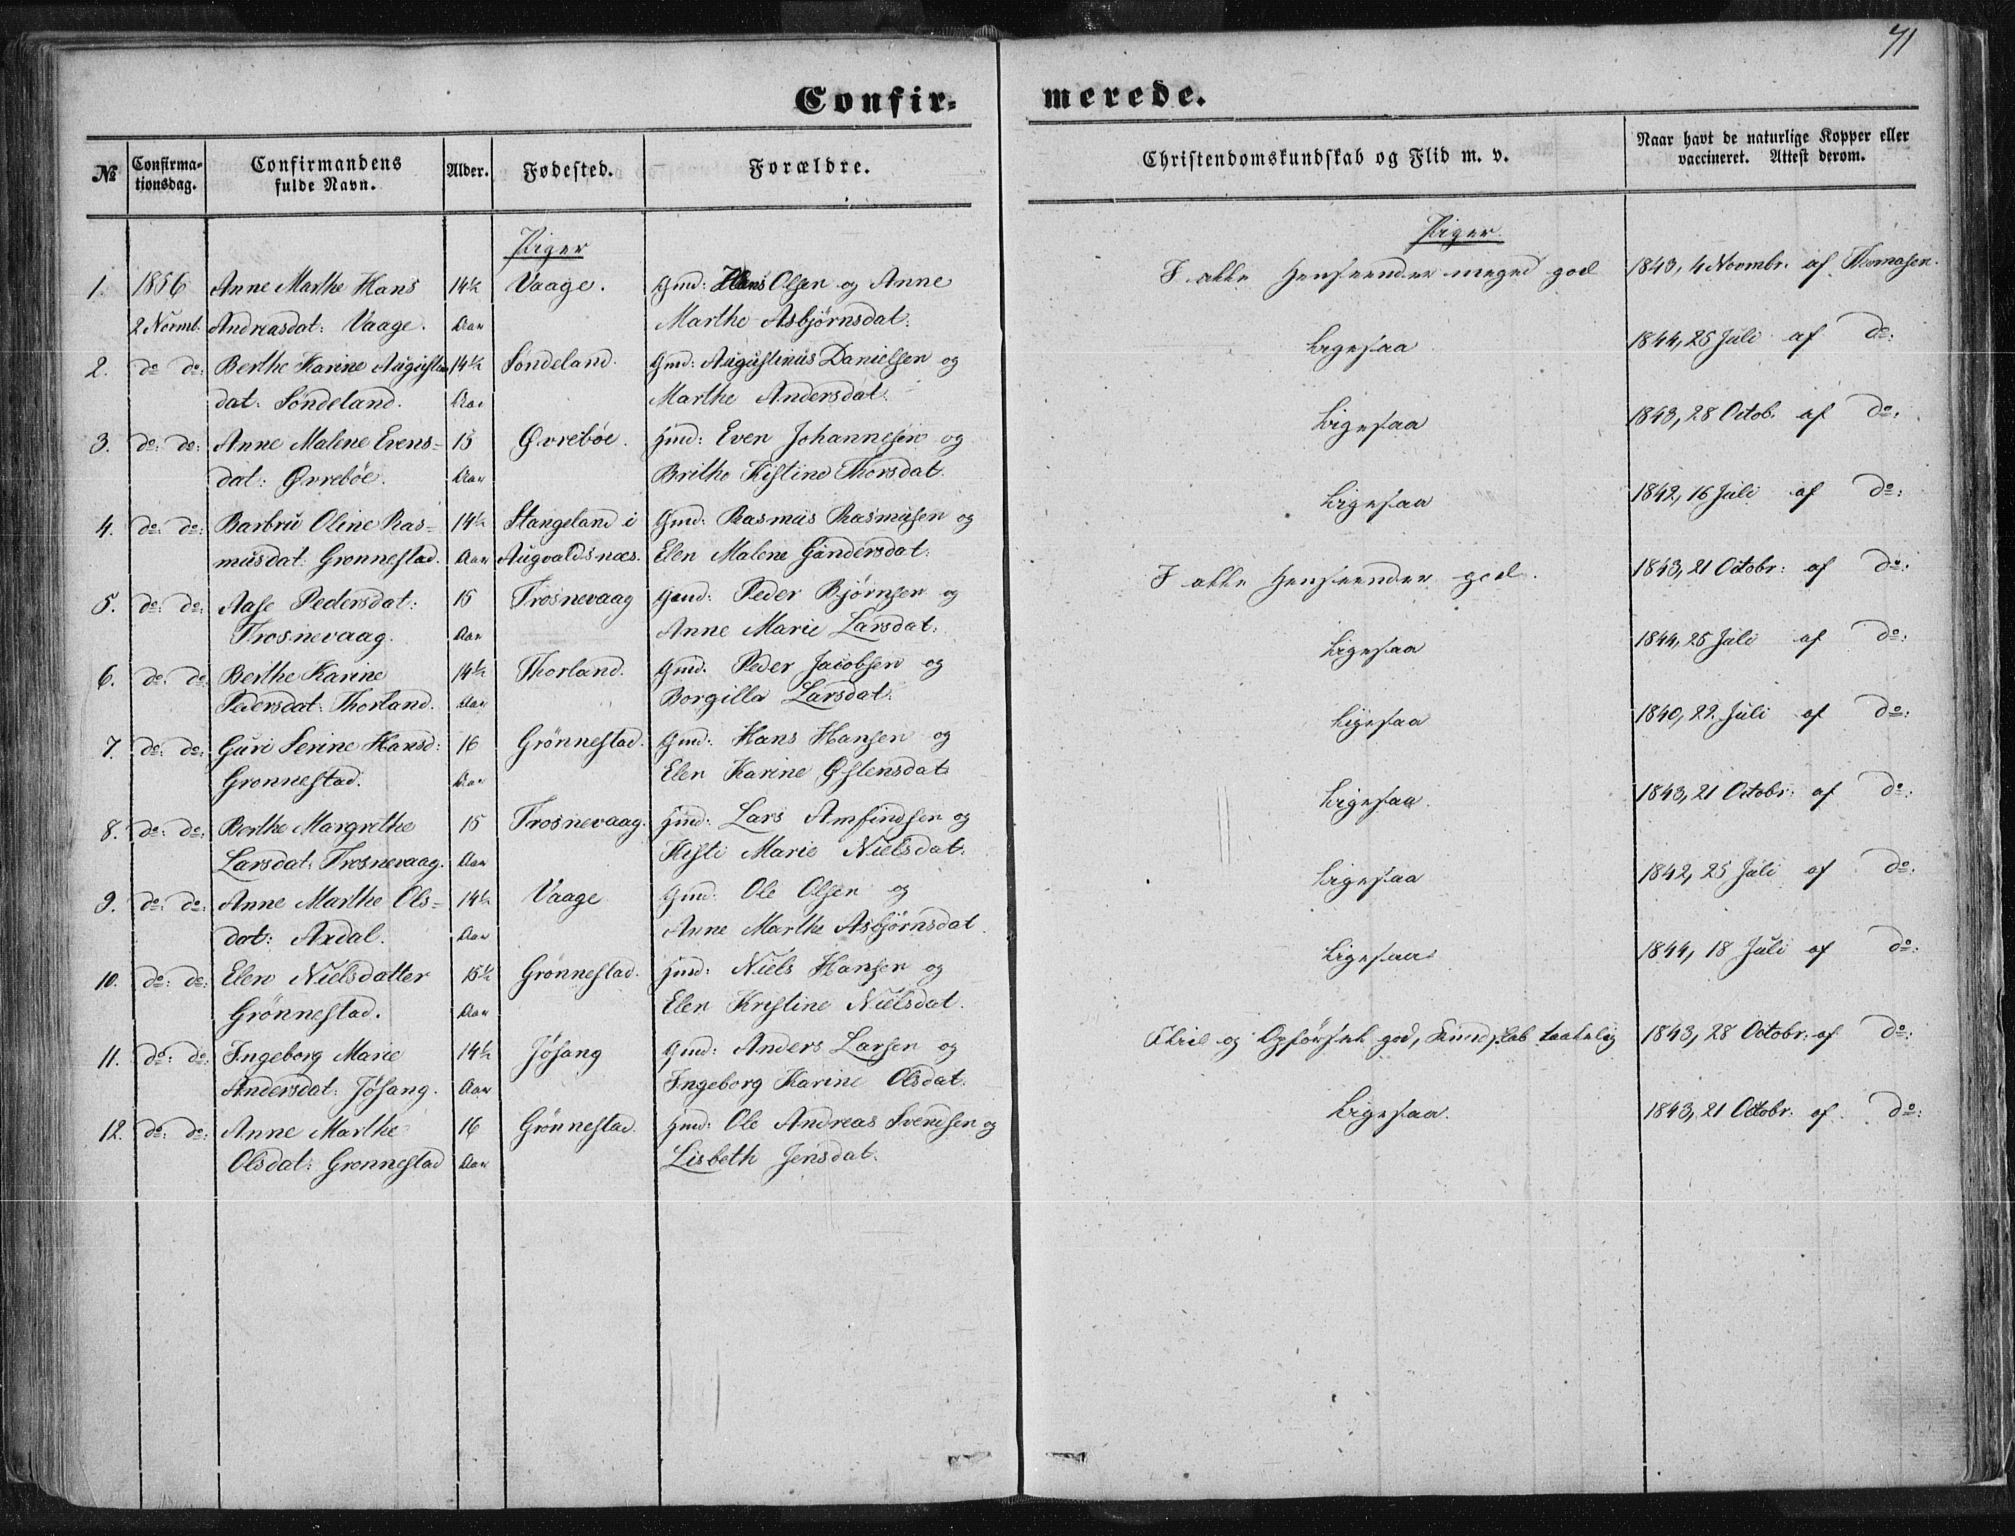 71
Confir-
merede.
№
Confirma-
tionsdag.
Confirmandens
fulde Navn.
Alder.
Fødested.
Forældre.
Christendomskundskab og Flid m. v.
Naar havt de naturlige Kopper eller
vaccineret. Attest derom.
Piger
Piger.
1. 1856 Anne Marthe Hans 14½ Vaage. Gmd: Hans Olsen og Anne I alle Henseender meget god 1843, 4 Novmbr. af Thomasen.
2 Novmb. Andreasdat: Vaage. Aar Marthe Asbjørnsdat:
2. do do: Berthe Karine Augustin 14½ Søndeland. Gmd: Augustinus Danielsen og Ligesaa 1844, 25 Juli af do:
dat: Søndeland. Aar Marthe Andersdat:
3. do: do: Anne Malene Evens- 15 Øvrebøe. Gmd: Even Johannesen og Ligesaa 1843, 28 Octob. af do:
dat: Øvrebøe. Aar Brithe Kistine Thorsdat.
4. do: do: Barbru Oline Ras- 14½ Stangeland i Gmd: Rasmus Rasmusen og Ligesaa 1842, 16 Juli af do:
musdat: Grønnestad. Aar Augvaldsnæs. Elen Malene Gundersdat:
5. do: do: Aase Pedersdat: 15 Trosnevaag Gmd: Peder Bjørnsen og I alle Henseender god. 1843, 21 Octobr: af do:
Trosnevaag. Aar Anne Marie Larsdat:
6. do: do: Berthe Karine 14½ Thorland. Gmd. Peder Jacobsen og Ligesaa 1844, 25 Juli af do:
Pedersdat: Thorland. Aar Borgilla Larsdat.
7. do: do: Guri Serine Hansd: 16 Grønnestad. Gmd: Hans Hansen og Ligesaa 1840, 22. Juli af do:
Grønnestad. Aar Elen Karine Østensdat:
8. do: do: Berthe Margrethe 15 Trosnevaag. Gmd: Lars Amfindsen og Ligesaa. 1843, 21 Octobr: af do:
Larsdat: Trosnevaag. Aar Kisti Marie Nielsdat:
9. do: do: Anne Marthe Ols- 14½ Vaage Gmd: Ole Olsen og Ligesaa 1842, 25 Juli af do:
dat: Axdal. Aar Anne Marthe Asbjørnsdat.
10. do: do: Elen Nielsdatter 15½ Grønnestad. Gmd: Niels Hansen og Ligesaa 1844, 18 Juli af do:
Grønnestad. Aar Elen Kristine Nielsdat.
11. do: do: Ingeborg Marie 14½ Jøsang Gmd: Anders Larsen og Flid og Opførsel god, Kundskab taalelig 1843, 28 Octobr: af do:
Andersdat: Jøsang. Aar Ingeborg Karine Olsdat:
12. do: do: Anne Marthe 16 Grønnestad. Gmd: Ole Andreas Svendsen og Ligesaa. 1843, 21 Octobr: af do:
Olsdat: Grønnestad Aar Lisbeth Jensdat.